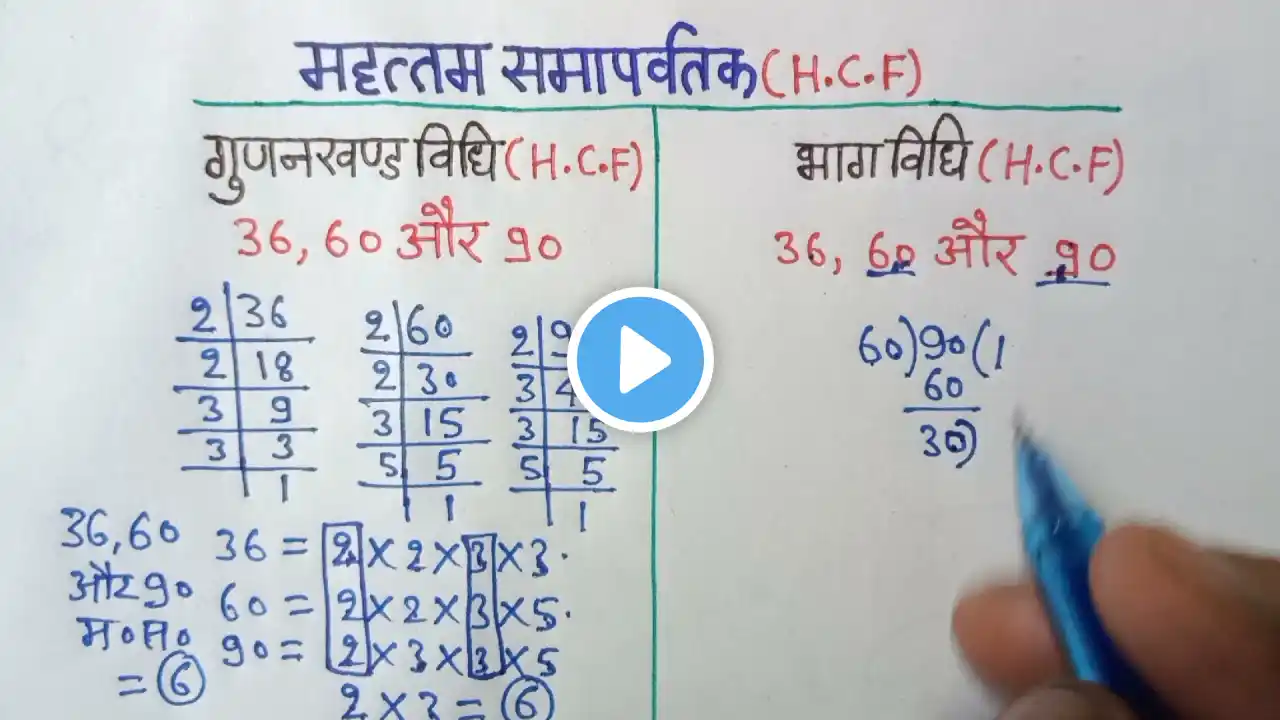 महत्तम समापर्वतक (H.C.F)
गुणनखण्ड विधि (H.C.F)
36, 60 और 90
2 36
2 18
3 9
3 3
1
2 60
2 30
3 15
5 5
1 1
2
3
3 15
5 5
1
36, 60
और 90
म०स०
= 6
36 = 2 × 2 × 3 × 3.
60 = 2 × 2 × 3 × 5.
90 = 2 × 3 × 3 × 5
2 × 3 = 6
भाग विधि (H.C.F)
36, 60 और 90
60)90(1
60
30)